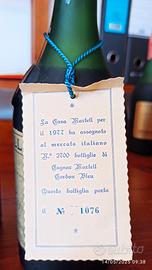 La Casa Martell per
il 1977 ha assegnato
al mercato italiano
N.° 2700 bottiglie di
Cognac Martell
Cordon Bleu
Questa bottiglia porta
il N° 1076
14/05/2025 09:38